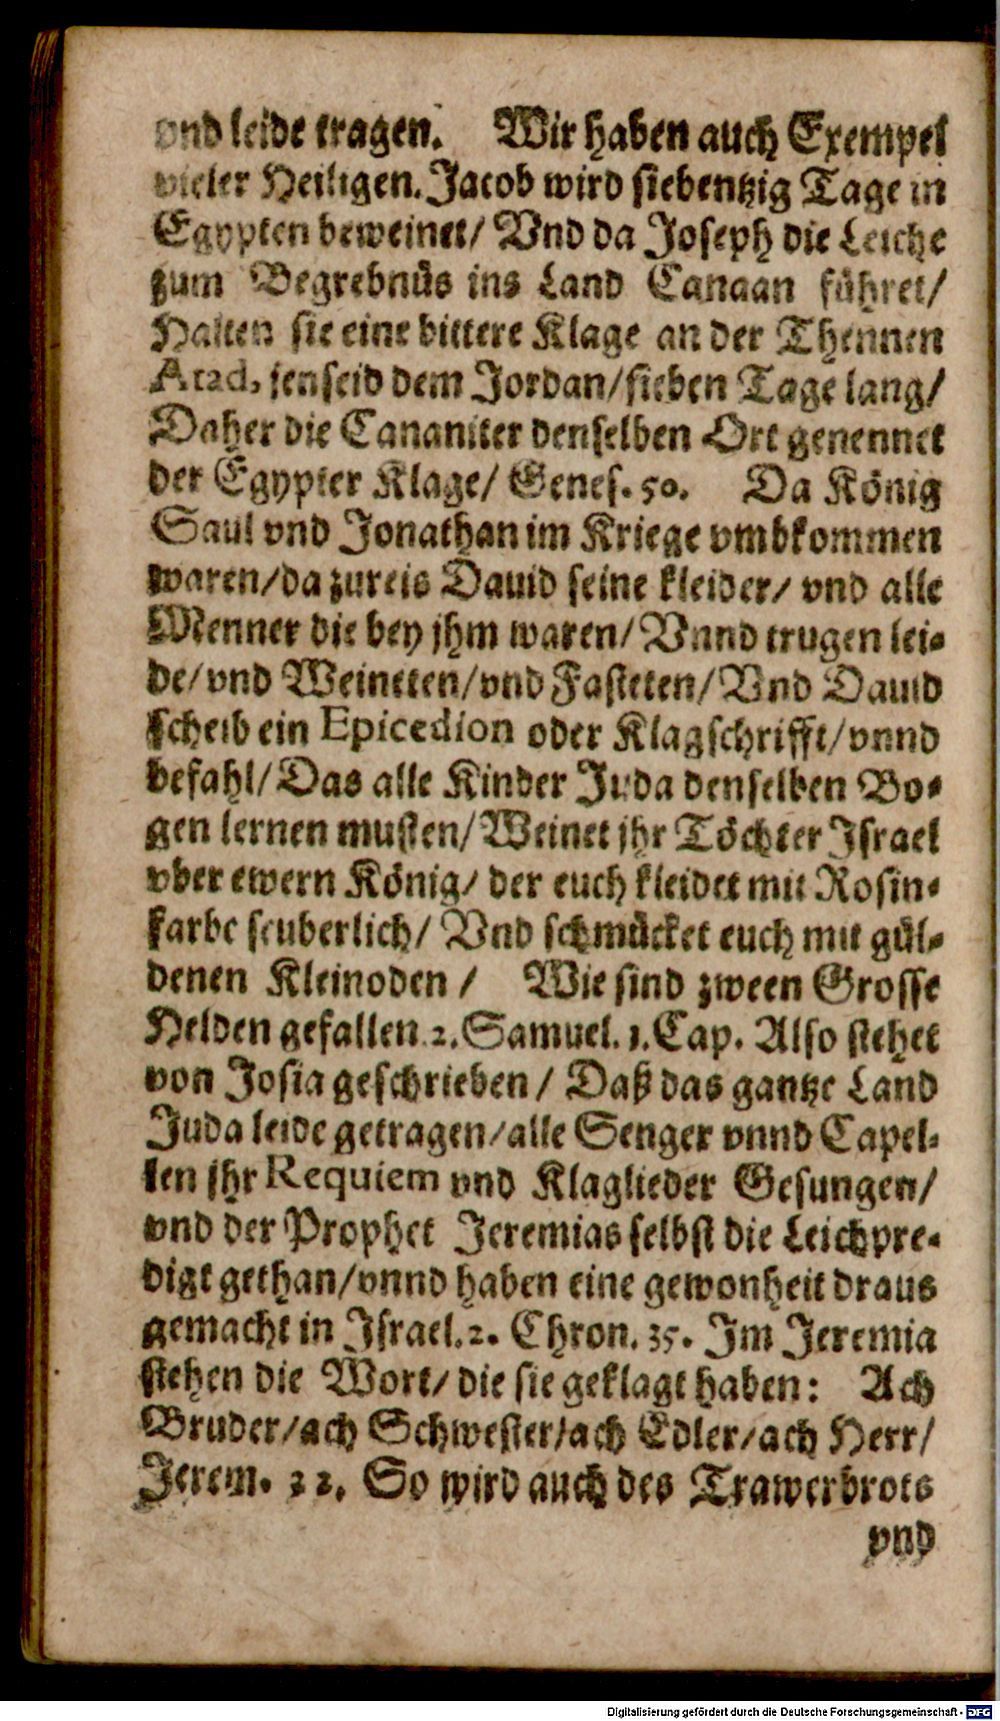 vnd leide tragen. Wir haben auch Exempel
vieler Heiligen. Jacob wird siebentzig Tage in
Egypten beweinet/ Vnd da Joseph die Leiche
zum Begrebnüs ins Land Canaan führet/
Halten sie eine bittere Klage an der Thennen
Atad, jenseid dem Jordan/sieben Tage lang/
Daher die Cananiter denselben Ort genennet
der Egypter Klage/ Genes. 50. Da König
Saul vnd Jonathan im Kriege vmbkommen
waren/da zureis Dauid seine kleider/ vnd alle
Menner die bey jhm waren/ Vnnd trugen lei-
de/vnd Weineten/vnd Fasteten/ Vnd Dauid
scheib ein Epicedion oder Klagschrifft/vnnd
befahl/ Das alle Kinder Juda denselben Bo-
gen lernen musten/ Weinet jhr Töchter Israel
vber ewern König/ der euch kleidet mit Rosin-
farbe seuberlich/ Vnd schmücket euch mit gül-
denen Kleinoden / Wie sind zween Grosse
Helden gefallen 2. Samuel. 1. Cap. Also stehet
von Josia geschrieben / Daß das gantze Land
Juda leide getragen/alle Senger vnnd Capel-
len jhr Requiem vnd Klaglieder Gesungen/
vnd der Prophet Jeremias selbst die Leichpre-
digt gethan/vnnd haben eine gewonheit draus
gemacht in Israel. 2. Chron. 35. Im Jeremia
stehen die Wort/ die sie geklagt haben: Ach
Bruder/ach Schwester/ach Edler/ach Herr/
Jerem. 22. So wird auch des Trawerbrots
vnd
Digitalisierung gefördert durch die Deutsche Forschungsgemeinschaft - DFG